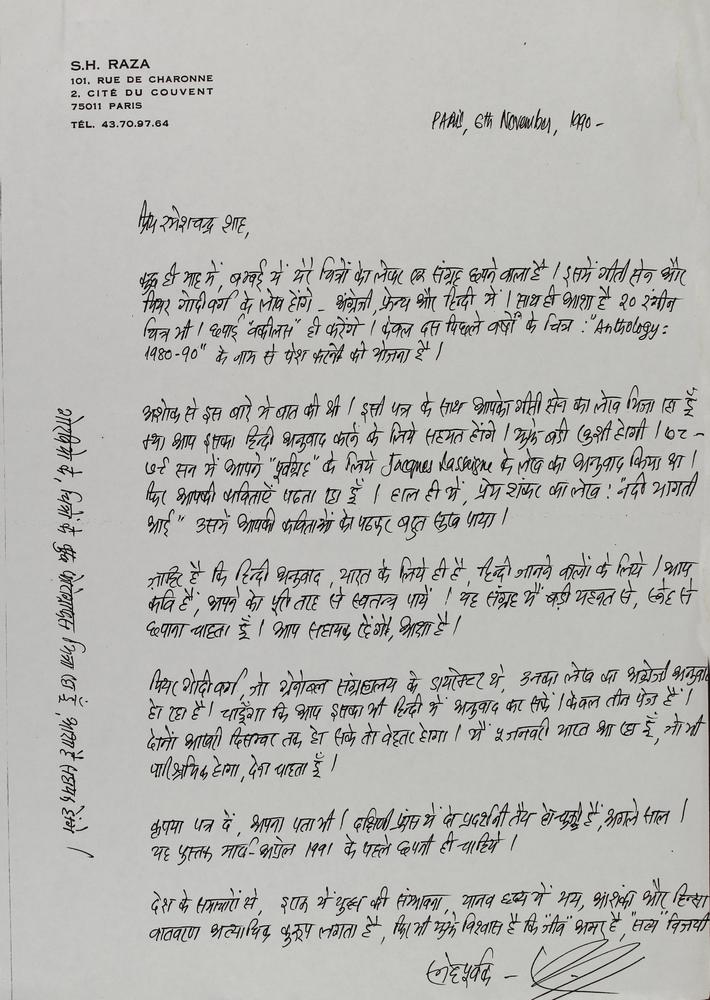 S.H. RAZA
101, RUE DE CHARONNE
2, CITÉ DU COUVENT
75011 PARIS
TÉL. 43.70.97.64
PARIS, 6th November, 1990 -
प्रिय रमेशचन्द्र शाह,
कुछ ही माह में, बम्बई में मेरे चित्रों को लेकर एक संग्रह छपने वाला है । इसमें गीती सेन और
पियेर गोदीबर्ग के लेख होंगे - अंग्रेजी, फ्रेन्च और हिन्दी में । साथ ही आशा है २० रंगीन
चित्र भी । छपाई "वकीलस" ही करेंगे । केवल दस पिछले वर्षों के चित्र : "Anthology:
1980-90" के नाम से पेश करने की योजना है ।
अशोक से इस बारे में बात की थी । इसी पत्र के साथ आपको गीती सेन का लेख भिजा रहा हूँ
क्या आप इसका हिन्दी अनुवाद करने के लिये सहमत होंगे । मुझे बड़ी खुशी होगी ।
सन में आपने "पूर्वग्रह" के लिये Jacques Lassaigne के लेख का अनुवाद किया था ।
फिर आपकी कवितायें पढता रहा हूँ । हाल ही में, प्रेम शंकर का लेख : "नदी भागती
आई" उसमें आपकी कविताओं को पढकर बहुत सुख पाया ।
ज़ाहिर है कि हिन्दी अनुवाद, भारत के लिये ही है, हिन्दी जानने वालों के लिये । आप
कवि हैं, अपने को पूरी तरह से स्वतन्त्र पायें । यह संग्रह मैं बड़ी मेहनत से, स्नेह से
छपाना चाहता हूँ । आप सहायक होंगे, आशा है ।
पियेर गोदीबर्ग, जो ग्रेनोब्ल संग्रहालय के डायरेक्टर थे, उनका लेख का अंग्रेजी अनुवाद
हो रहा है । चाहूँगा कि आप इसका भी हिन्दी में अनुवाद कर सकें । केवल तीन पेज हैं ।
दोनों आखरी दिसम्बर तक हो सके तो बेहतर होगा । मैं ५ जनवरी भारत आ रहा हूँ, जो भी
पारिश्रमिक होगा, देना चाहता हूँ ।
कृपया पत्र दें, अपना पता भी । दक्षिणी फ्रांस में दो प्रदर्शनी तैय हो चुकी हैं, अगले साल ।
यह पुस्तक मार्च-अप्रेल 1991 के पहले छपनी ही चाहिये ।
देश के समाचारों से, इराक में युद्ध की संभावना, मानव हृदय में भय, आशंका और हिन्सा
वातावरण अत्याधिक कुरूप लगता है, फिर भी मुझे विश्वास है कि "जीव" अमर है, "सत्य" विजयी
स्नेहपूर्वक -
चित्रों के कुछ फोटोग्राफ्स भिजा रहा हूँ, आशा है सहायक होंगे ।